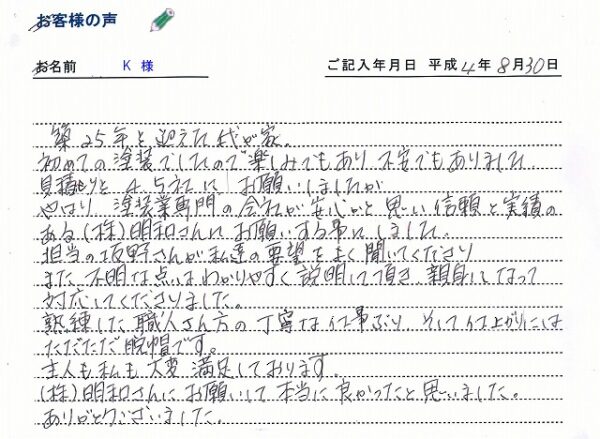 お客様の声
お名前 K 様 ご記入年月日 平成 4 年 8 月 30 日
築25年を迎えた我が家。
初めての塗装でしたので楽しみでもあり、不安でもありました。
見積りを4,5社にお願いしましたが
やはり塗装業専門の会社が安心かと思い信頼と実績の
ある(株)明和さんにお願いする事にしました。
担当の坂野さんが私達の要望をよく聞いてくださり
また不明な点はわかりやすく説明して頂き、親身になって
対応してくださりました。
熟練した職人さん方の丁寧な仕事ぶり、そして仕上がりには
ただただ脱帽です。
主人も私も大変満足しております。
(株)明和さんにお願いして本当に良かったと思いました。
ありがとうございました。